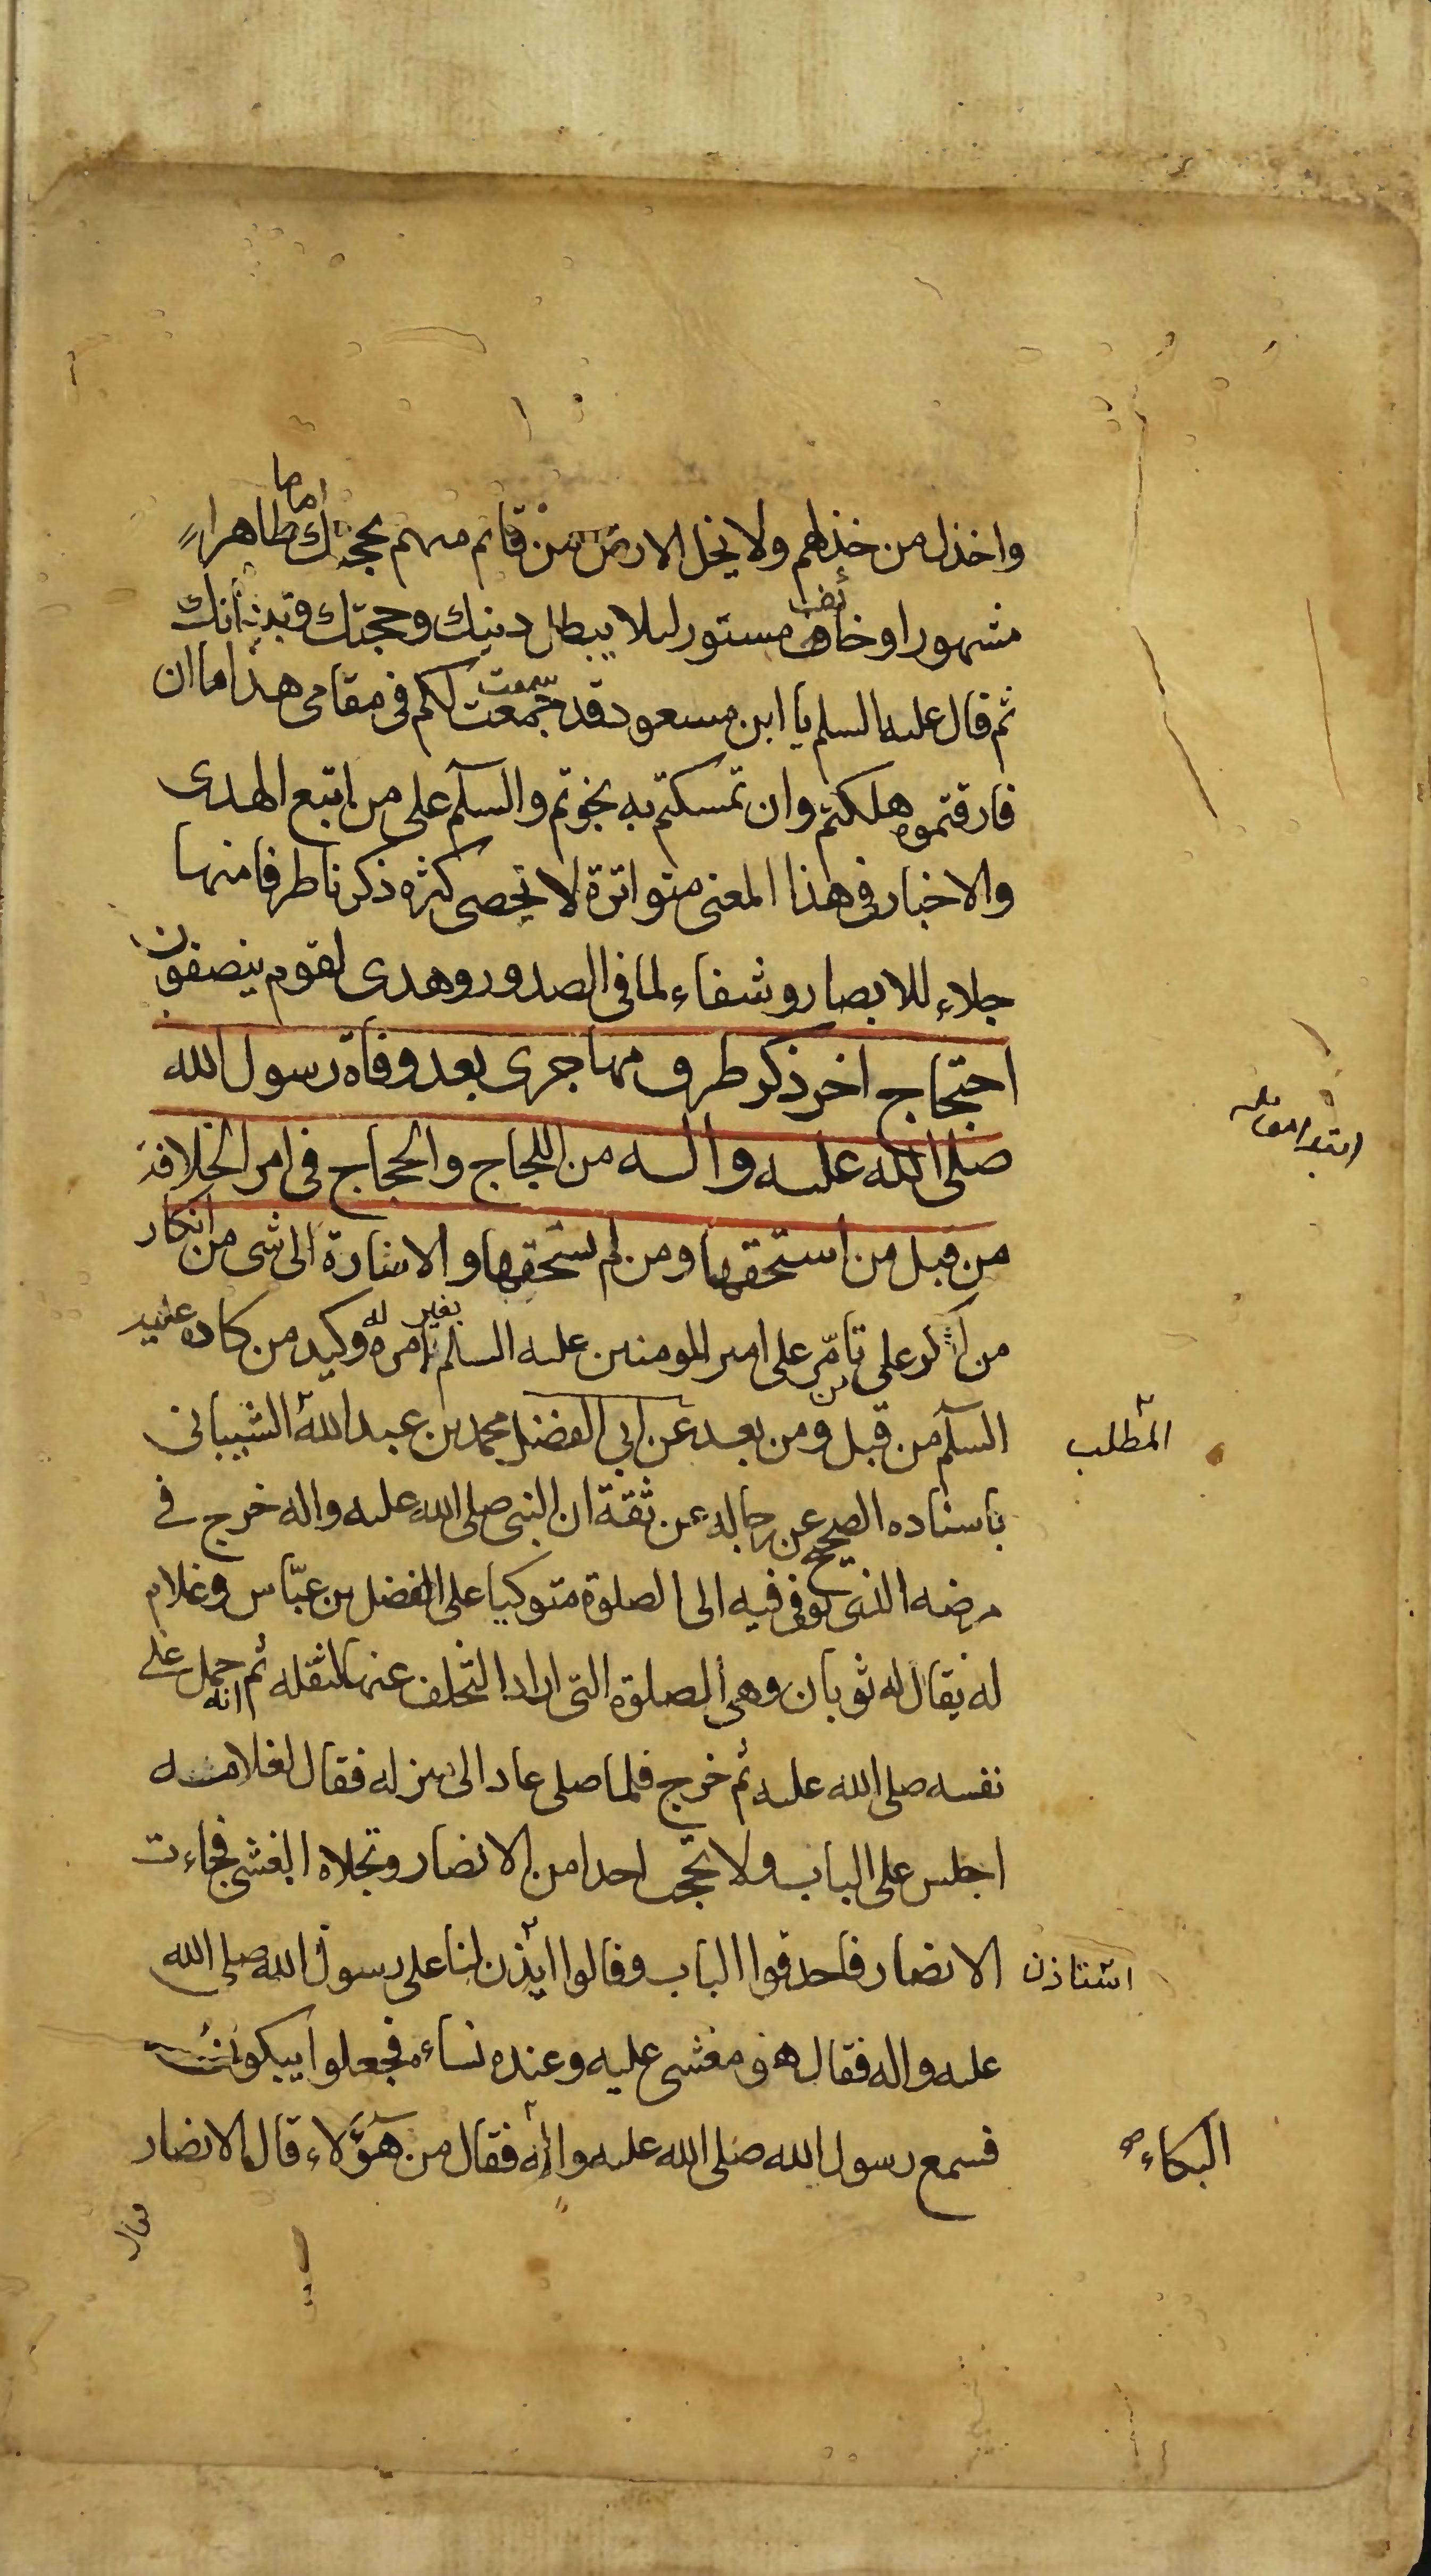 واخذل من خذلهم ولا يخل الارض من قائم منهم بحجتك اماما ظاهرا
مشهورا او خائف مستور لئلا يبطل دينك وحجتك وبيناتك
ثم قال عليه السلم يا ابن مسعود قد جمعت لكم فى مقامى هذا ما ان
فارقتموه هلكتم وان تمسكتم به نجوتم والسلم على من اتبع الهدى
والاخبار فى هذا المعنى متواترة لا تحصى كثره ذكرنا طرفا منها
جلاء للابصار وشفاء لما فى الصدور وهدى لقوم ينصفون
احتجاج اخر ذكر طرف مما جرى بعد وفاة رسول الله
صلى الله عليه واله من اللجاج والحجاج فى امر الخلافة
من قبل من استحقها ومن لم يستحقها والاشارة الى شى من انكار
من انكر على تامر على امير المومنين عليه السلم بغير امره له وكيد من كاده عليه
السلم من قبل ومن بعد عن ابى الفضل محمد بن عبد الله الشيبانى
المطلب
باسناده الصحيح عن رجاله عن ثقة ان النبى صلى الله عليه واله خرج فى
مرضه الذى توفى فيه الى الصلوة متوكيا على الفضل بن عباس وغلام
له يقال له ثوبان وهى الصلوة التى اراد التخلف عنها لثقله ثم انه حمل على
نفسه صلى الله عليه ثم خرج فلما صلى عاد الى منزله فقال لغلامه
اجلس على الباب ولا تحجب احدا من الانصار وتجلاه الغشى فجاءت
الانصار فاحدقوا الباب وقالوا ايذن لنا على رسول الله صلى الله
استاذن
عليه واله فقال هو مغشى عليه وعنده نساءه فجعلوا يبكون
فسمع رسول الله صلى الله عليه واله فقال من هؤلاء قال الانصار
البكاء